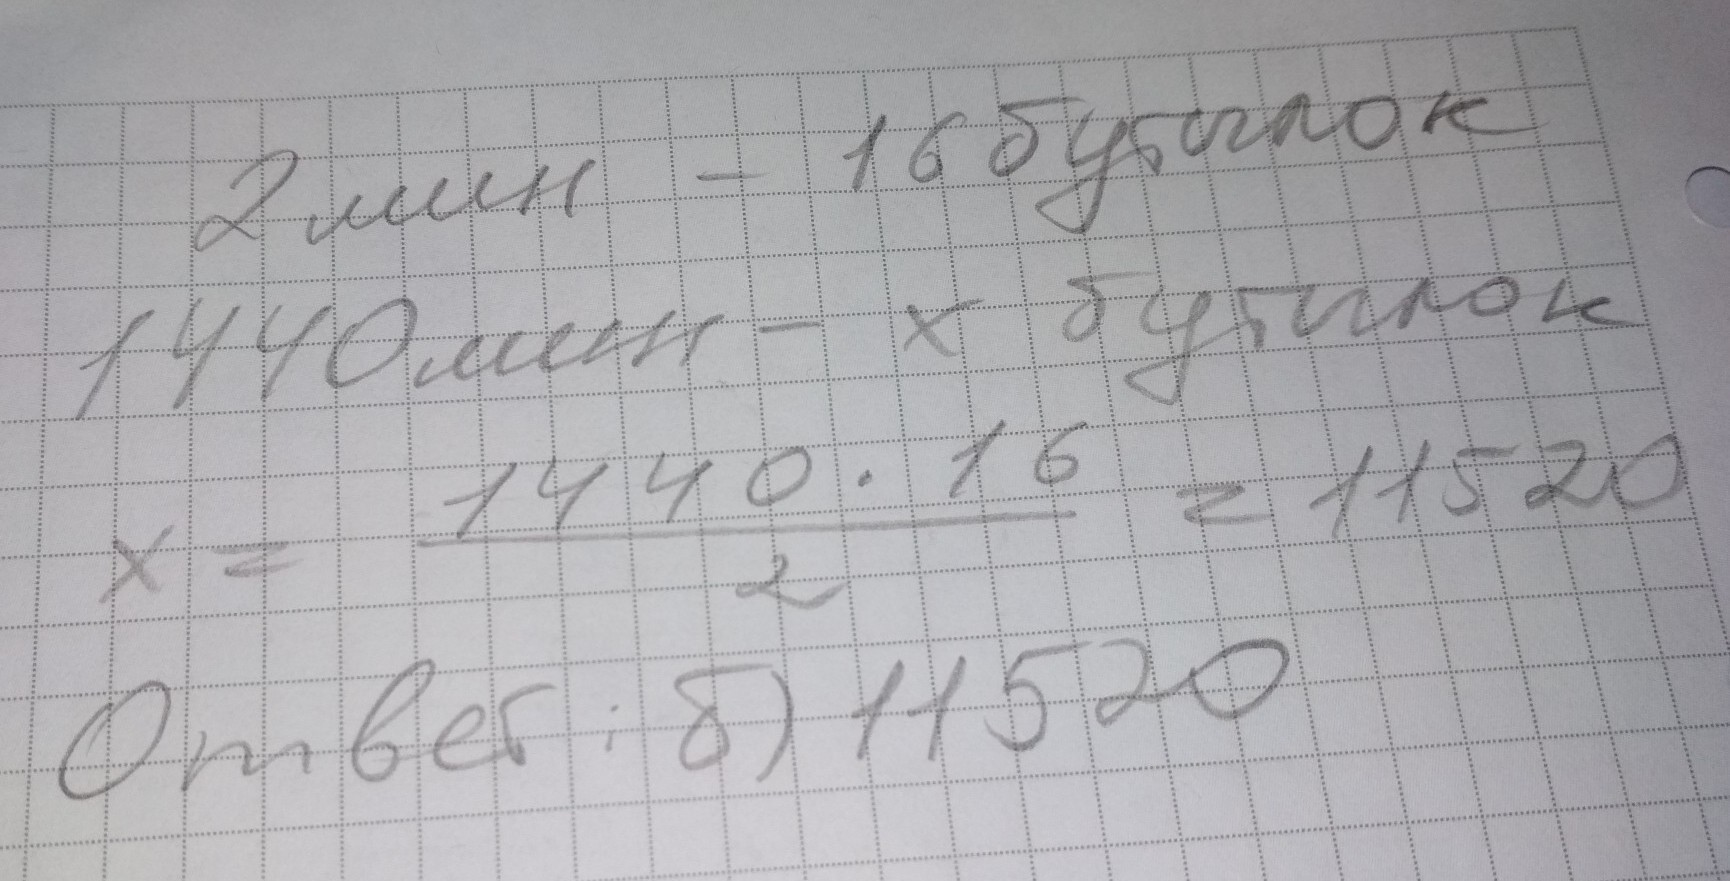 2 мин - 16 бутылок
1440 мин - х бутылок
х = 1440 · 16 / 2 = 11520
Ответ: б) 11520